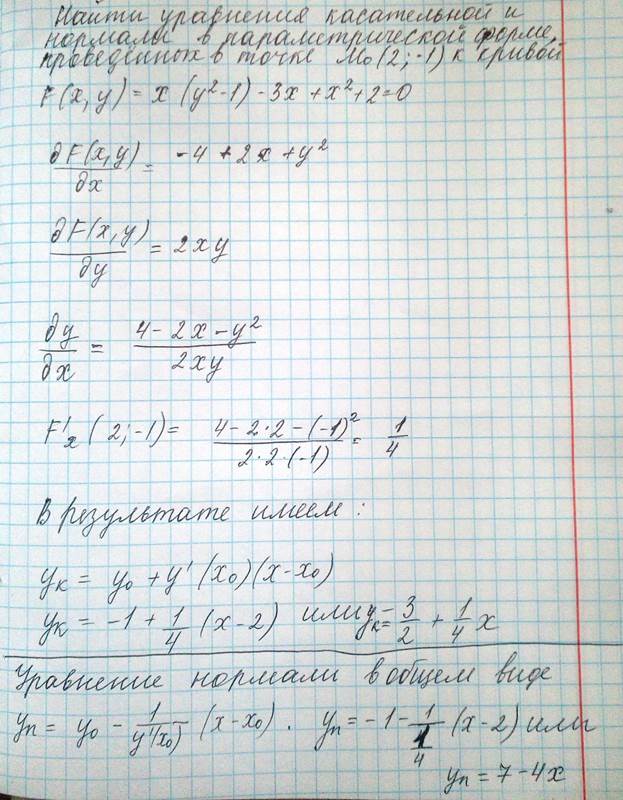 Найти уравнения касательной и
нормали в параметрической форме,
проведённых в точке M₀(2;-1) к кривой
F(x,y) = x (y²-1) - 3x + x² + 2 = 0
∂F(x,y)/∂x = -4 + 2x + y²
∂F(x,y)/∂y = 2xy
∂y/∂x = (4 - 2x - y²)/(2xy)
F'ₓ(2;-1) = (4 - 2·2 - (-1)²)/(2·2·(-1)) = 1/4
В результате имеем:
yₖ = y₀ + y'(x₀)(x-x₀)
yₖ = -1 + 1/4 (x-2) или yₖ = -3/2 + 1/4 x
Уравнение нормали в общем виде
yₙ = y₀ - 1/y'(x₀) (x-x₀). yₙ = -1 - 1/(1/4) (x-2) или
yₙ = 7 - 4x